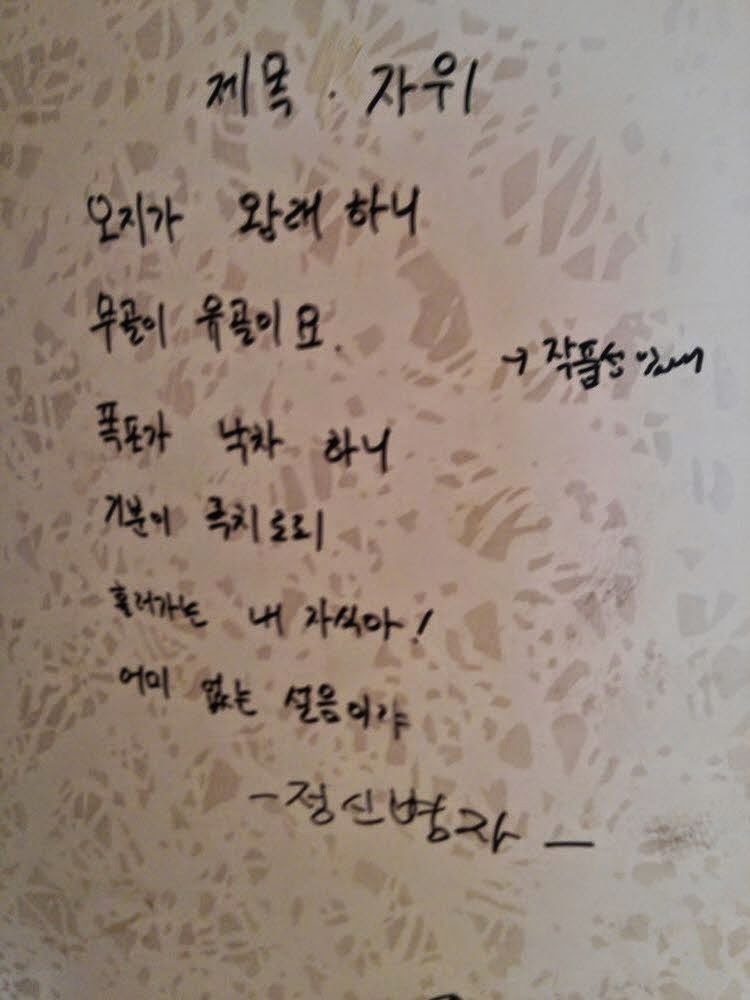 제목 . 자위
오지가 왕래 하니
무골이 유골이요.
→ 작품성 있네
폭포가 낙차 하니
기분이 극치로리
흘러가는 내 자식아!
어미 없는 설음이랴
- 정신병자 -